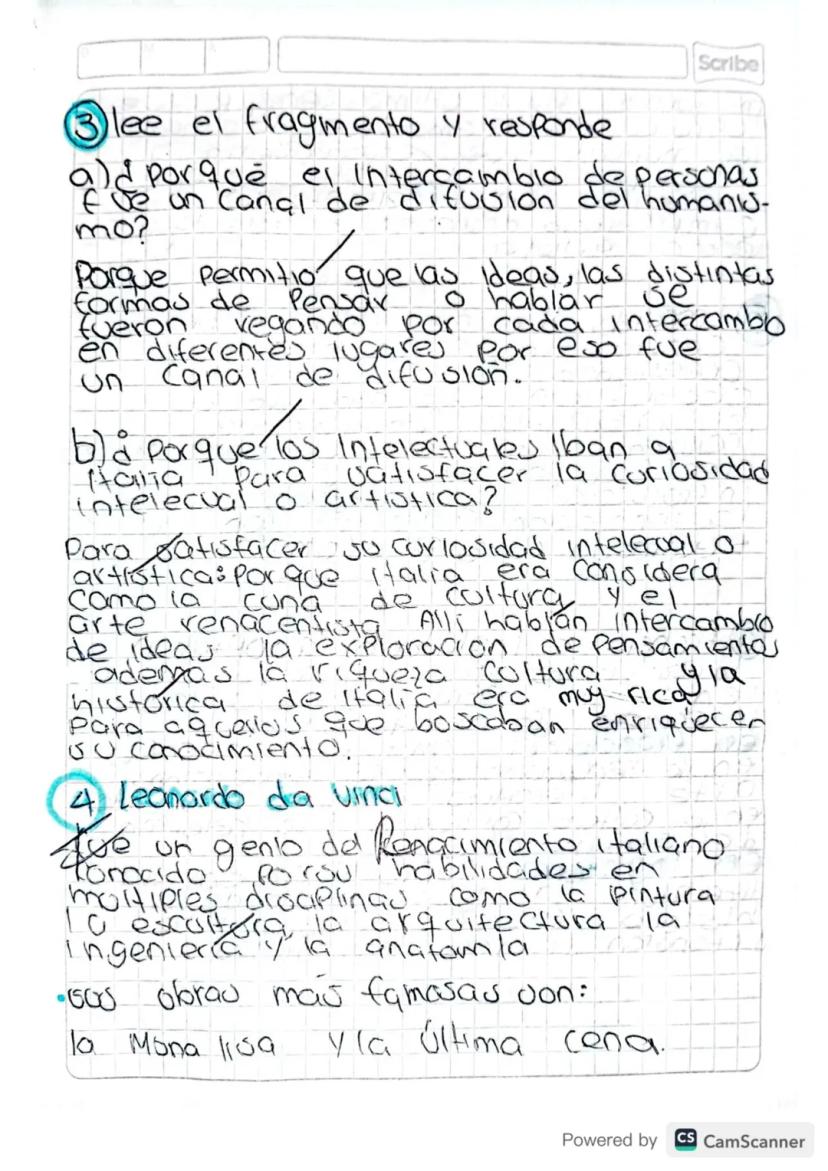 Scribe
3 lee el fragmento y responde
a) ¿Por qué el intercambio de personas
fue un canal de difusion del humanis-
mo?
Porque permitio que las ideas, las distintas
formas de Pensar o hablar se
fueron regando por cada intercambio
en diferentes lugares por eso fue
un canal de difusion.
b) ¿Porque los Intelectuales Iban a
Italia Para satisfacer la curiosidad
intelecual o artistica?
Para satisfacer su curiosidad intelecual o
artistica: Por que italia era considera
como la cuna de cultura y el
arte renacentista Alli habian intercambio
de ideas la exploracion de Pensamientos
ademas la riqueza cultura y la
historica de italia era muy rica
Para aquellos que boscaban enriquecer
su conocimiento.
4 Leonardo da vinci
fue un genio del Renacimiento italiano
conocido por su habilidades en
multiples disciplinas como la pintura
la escultura, la arquitectura la
ingenieria y la anatomia
•sus obras mas famosas son:
la Mona lisa y la última cena.
Powered by CS CamScanner